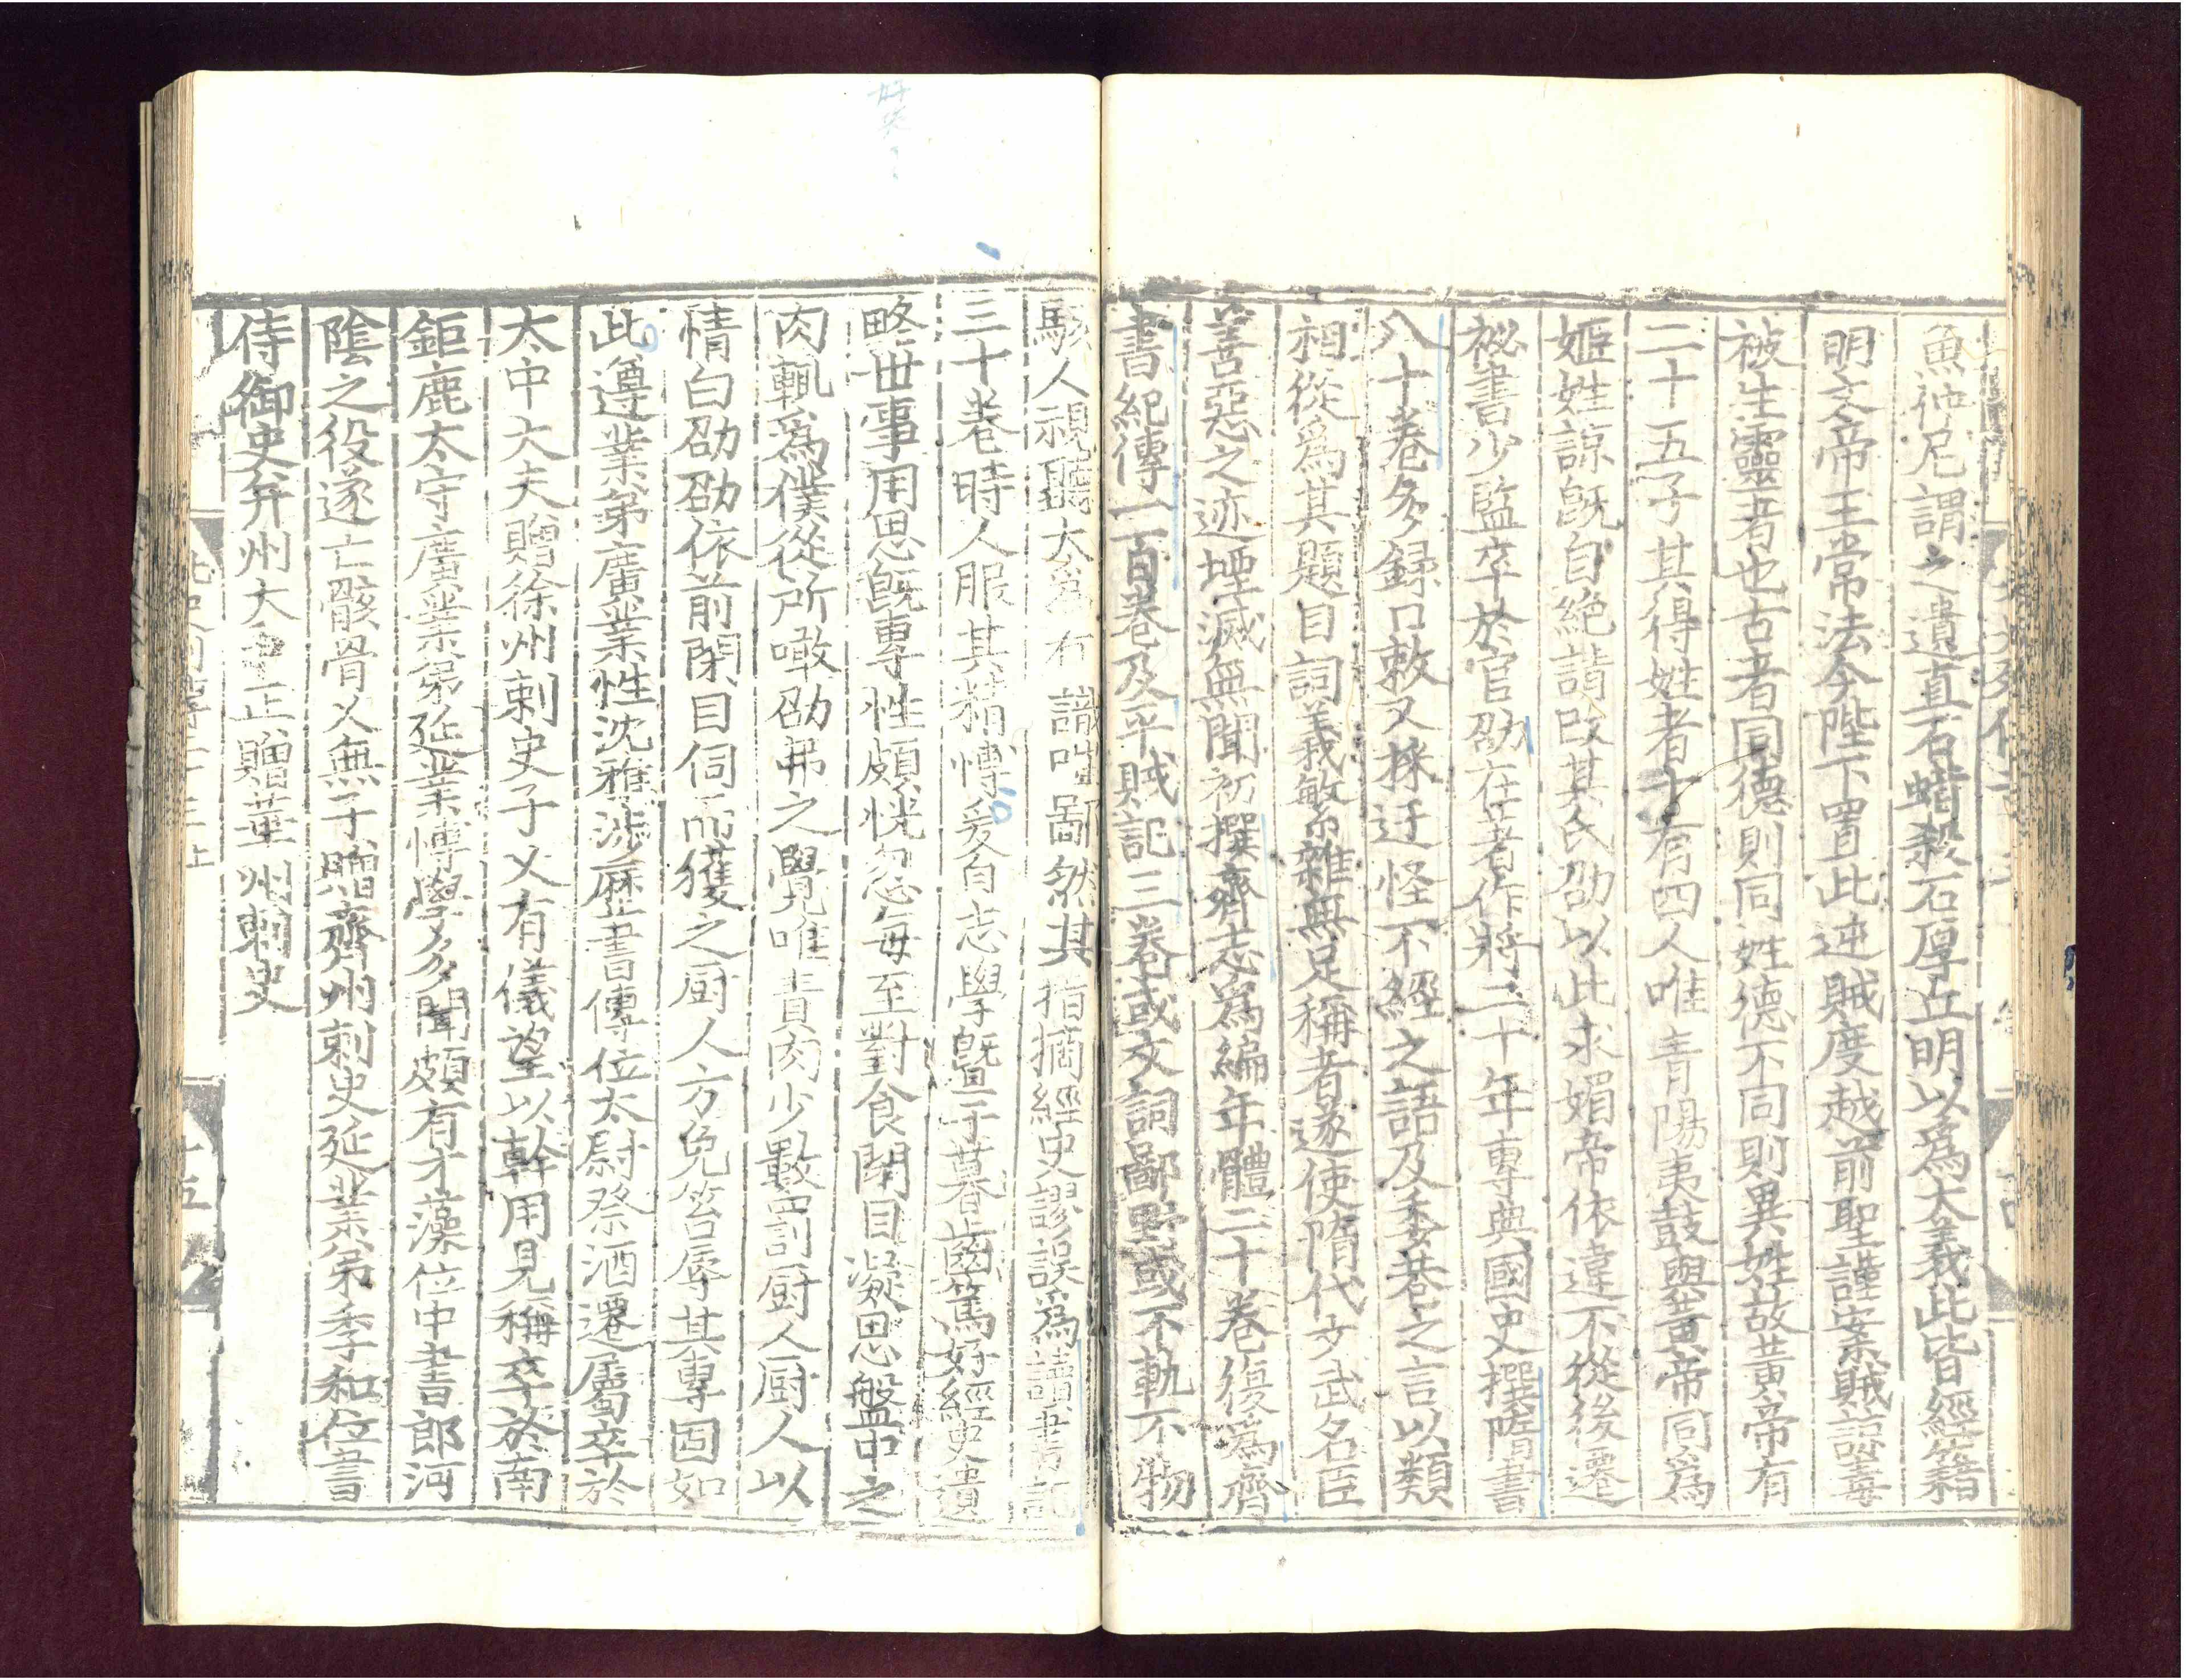 魚仲尼謂之遺直石蜡殺石厚丘明以爲大義此皆經籍
明文帝王常法今陛下置此逆賊度越前聖謹案賊諒毒
被生靈者也古者同德則同姓德不同則異姓故黄帝有
二十五子其得姓者十有四人唯青陽夷鼓與黄帝同爲
姬姓諒旣自絶請改其氏劭以此求媚帝依違不從後遷
祕書少監卒於官劭在著作將二十年專典國史撰隋書
八十卷多録口敕又採迂怪不經之語及委巷之言以類
相從爲其題目詞義繁雜無足稱者遂使隋代文武名臣
善惡之迹堙滅無聞初撰齊志爲編年體二十卷復爲齊
書紀傳一百卷及平賊記三卷或文詞鄙野或不軌不物
駭人視聽大爲有識嗤鄙然其指摘經史謬誤爲讀書記
三十卷時人服其精愽爰自志學曁乎暮齒篤好經史遺
略世事用思旣專性頗恍忽每至對食閉目凝思盤中之
肉輒爲僕從所噉劭弗之覺唯責肉少數罰厨人厨人以
情白劭劭依前閉目伺而獲之厨人方免笞辱其專固如
此遵業弟廣業性沈雅涉歷書傳位太尉祭酒遷屬卒於
太中大夫贈徐州刺史子乂有儀望以幹用見稱卒於南
鉅鹿太守廣業弟延業愽學多聞頗有才藻位中書郎河
陰之役遂亡骸骨又無子贈齊州刺史延業弟季和位書
侍御史并州大中正贈華州刺史
北史列傳二十三上
十五